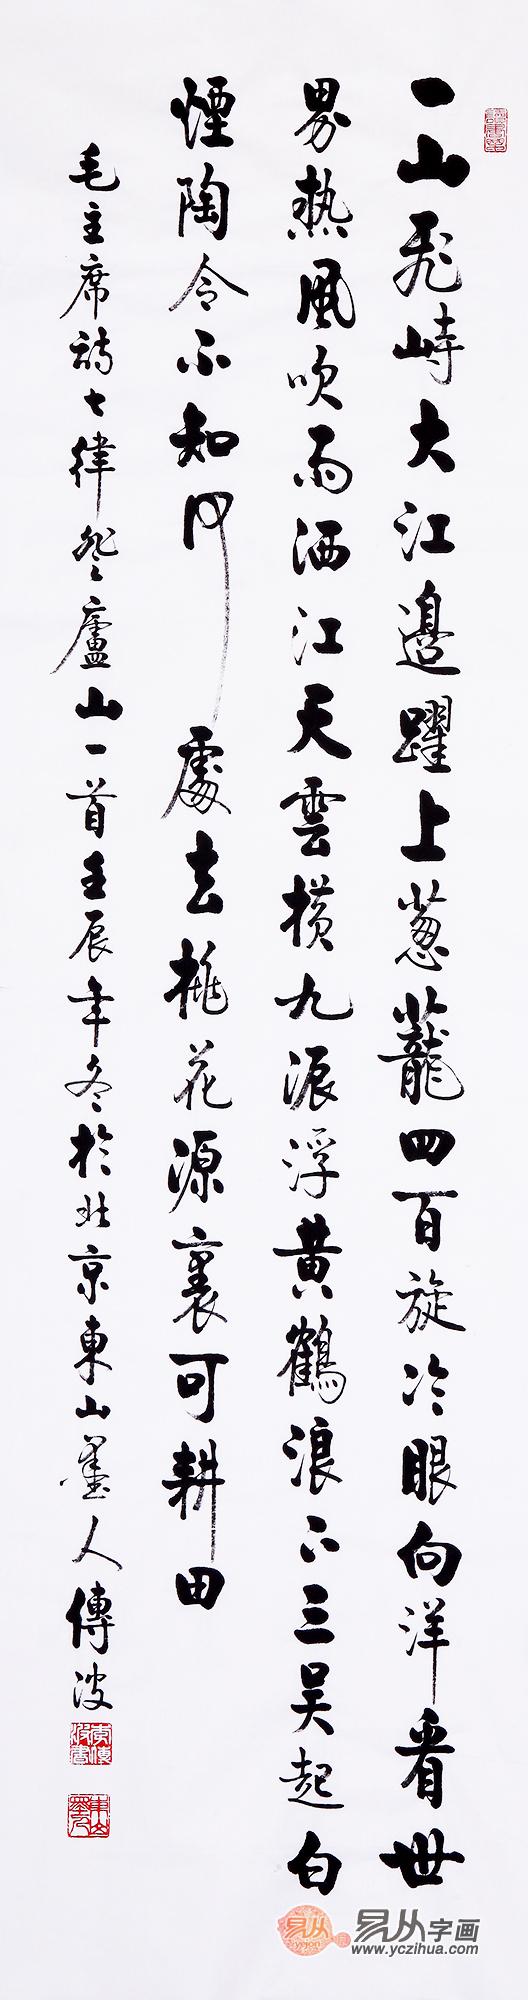 一山飛峙大江邉躍上葱蘢四百旋冷眼向洋看世
界熱風吹雨洒江天雲横九派浮黄鶴浪下三吴起白
煙陶令不知何處去桃花源裏可耕田
毛主席詩七律登廬山一首壬辰年冬於北京東山墨人傳波
易从字画
www.yczihua.com
yejon